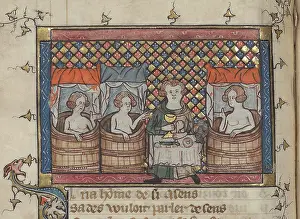 U na home de si g̃ sens
sa des vouloir parler de sens